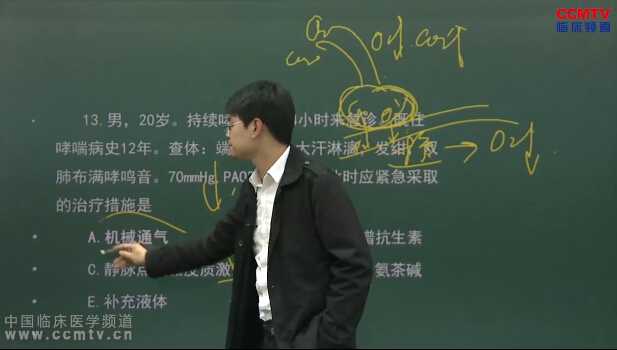 CCMTV
临床频道
O2↓ CO2↑
→ O2↓
13.男，20岁。持续 小时来急诊。既往
哮喘病史12年。查体：端 大汗淋漓，发绀，双
肺布满哮鸣音。70mmHg PAO2 时应紧急采取
的治疗措施是
A.机械通气 谱抗生素
C.静脉点 皮质激 氨茶碱
E.补充液体
中国临床医学频道
www.ccmtv.cn